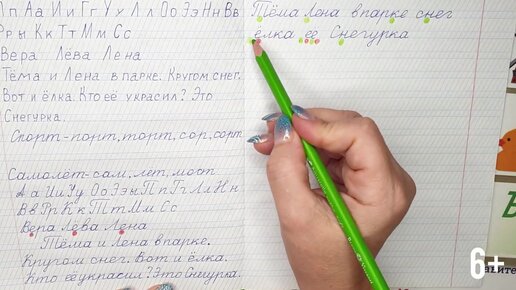 Пп Аа Ии Гг Уу Хх Лл Оо Ээ Нн Вв
Рр ы Кк Тт Мм Сс
Вера Лёва Лена
Тёма и Лена в парке. Кругом снег.
Вот и ёлка. Кто её украсил? Это
Снегурка.
Спорт-порт, торт, сор, сорт
Самолет-сам, лет, мост.
Аа Ии Уу Оо Ээ ы Пп Гг Лл Нн
Вв Рр Кк Тт Мм Сс
Вера Лева Лена
Тёма и Лена в парке.
Кругом снег. Вот и ёлка.
Кто её украсил? Это Снегурка.
Тёма Лена в парке снег
ёлка её Снегурка
6+